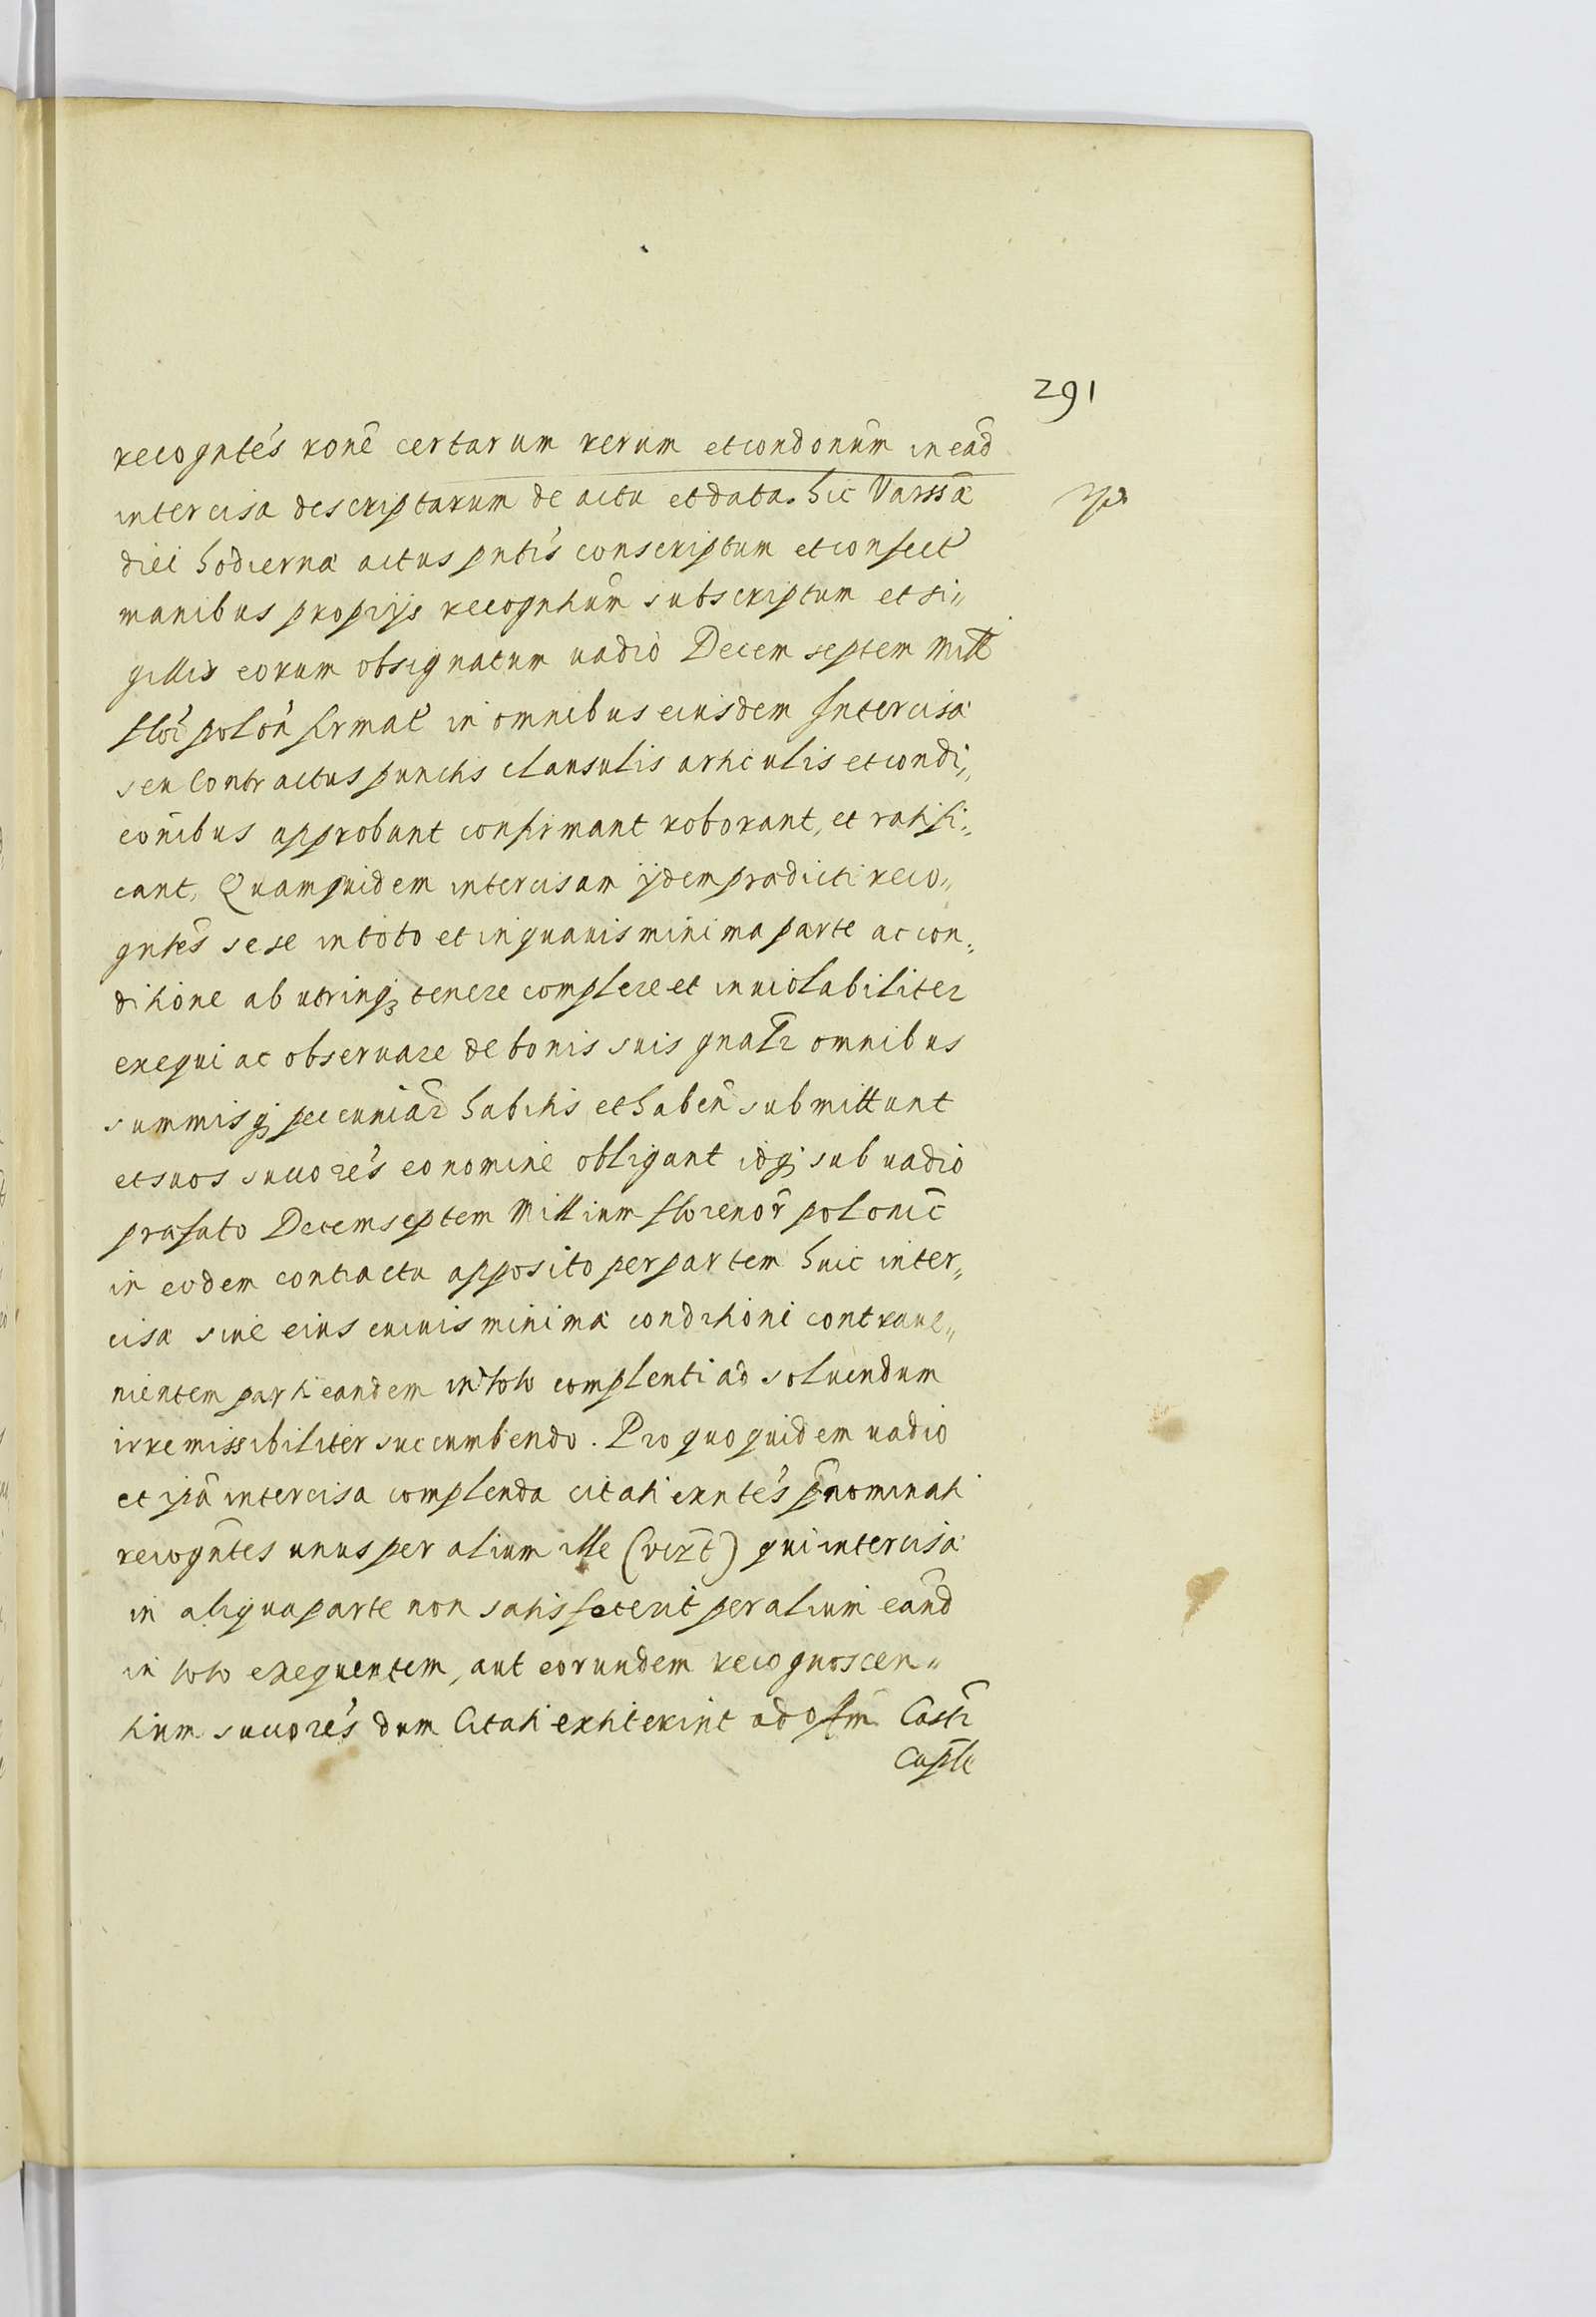 291
recogntés ronē certarum rerum et condonūm in eād
intercisa descriptarum de actu et data hic Varssā
diei hodiernæ actus pntis conscriptum et confect
manibus proprijs recogntium subscriptum et si„
gillis eorum obsignatum uadio Decem septem Mill
flor polon firmat in omnibus eiusdem Intercisæ
seu Contractus punctis clausulis articulis et condi„
cōnibus approbant confirmant roborant, et ratifi„
cant, Quamquidem intercisam ijdem prædicti reco„
gntēs sese in toto et in quauis minima parte ac con„
ditione ab utrinq; tenere complere et inuiolabiliter
exequi ac obseruare de bonis suis gnalr omnibus
summisq; pecuniar habitis et haben submittunt
et suos succorés eo nomine obligant idq; sub uadio
præfato Decem septem Millium florenor polonic
in eodem contractu apposito per partem huic inter„
cisæ siue eius cuiuis minimæ conditioni contraue„
nientem parti eandem in toto complenti ad soluendum
irremissibiliter succumbendo. Pro quo quidem uadio
et ipa intercisa complenda citati exntés pnominati
recogntes unus per alium ille (uizt) qui intercisæ
in aliqua parte non satisfecerit per alium eand
in toto exequentem, aut eorundem recognoscen„
tium succorés dum Citati extiterint ad Offm Castr
Caple